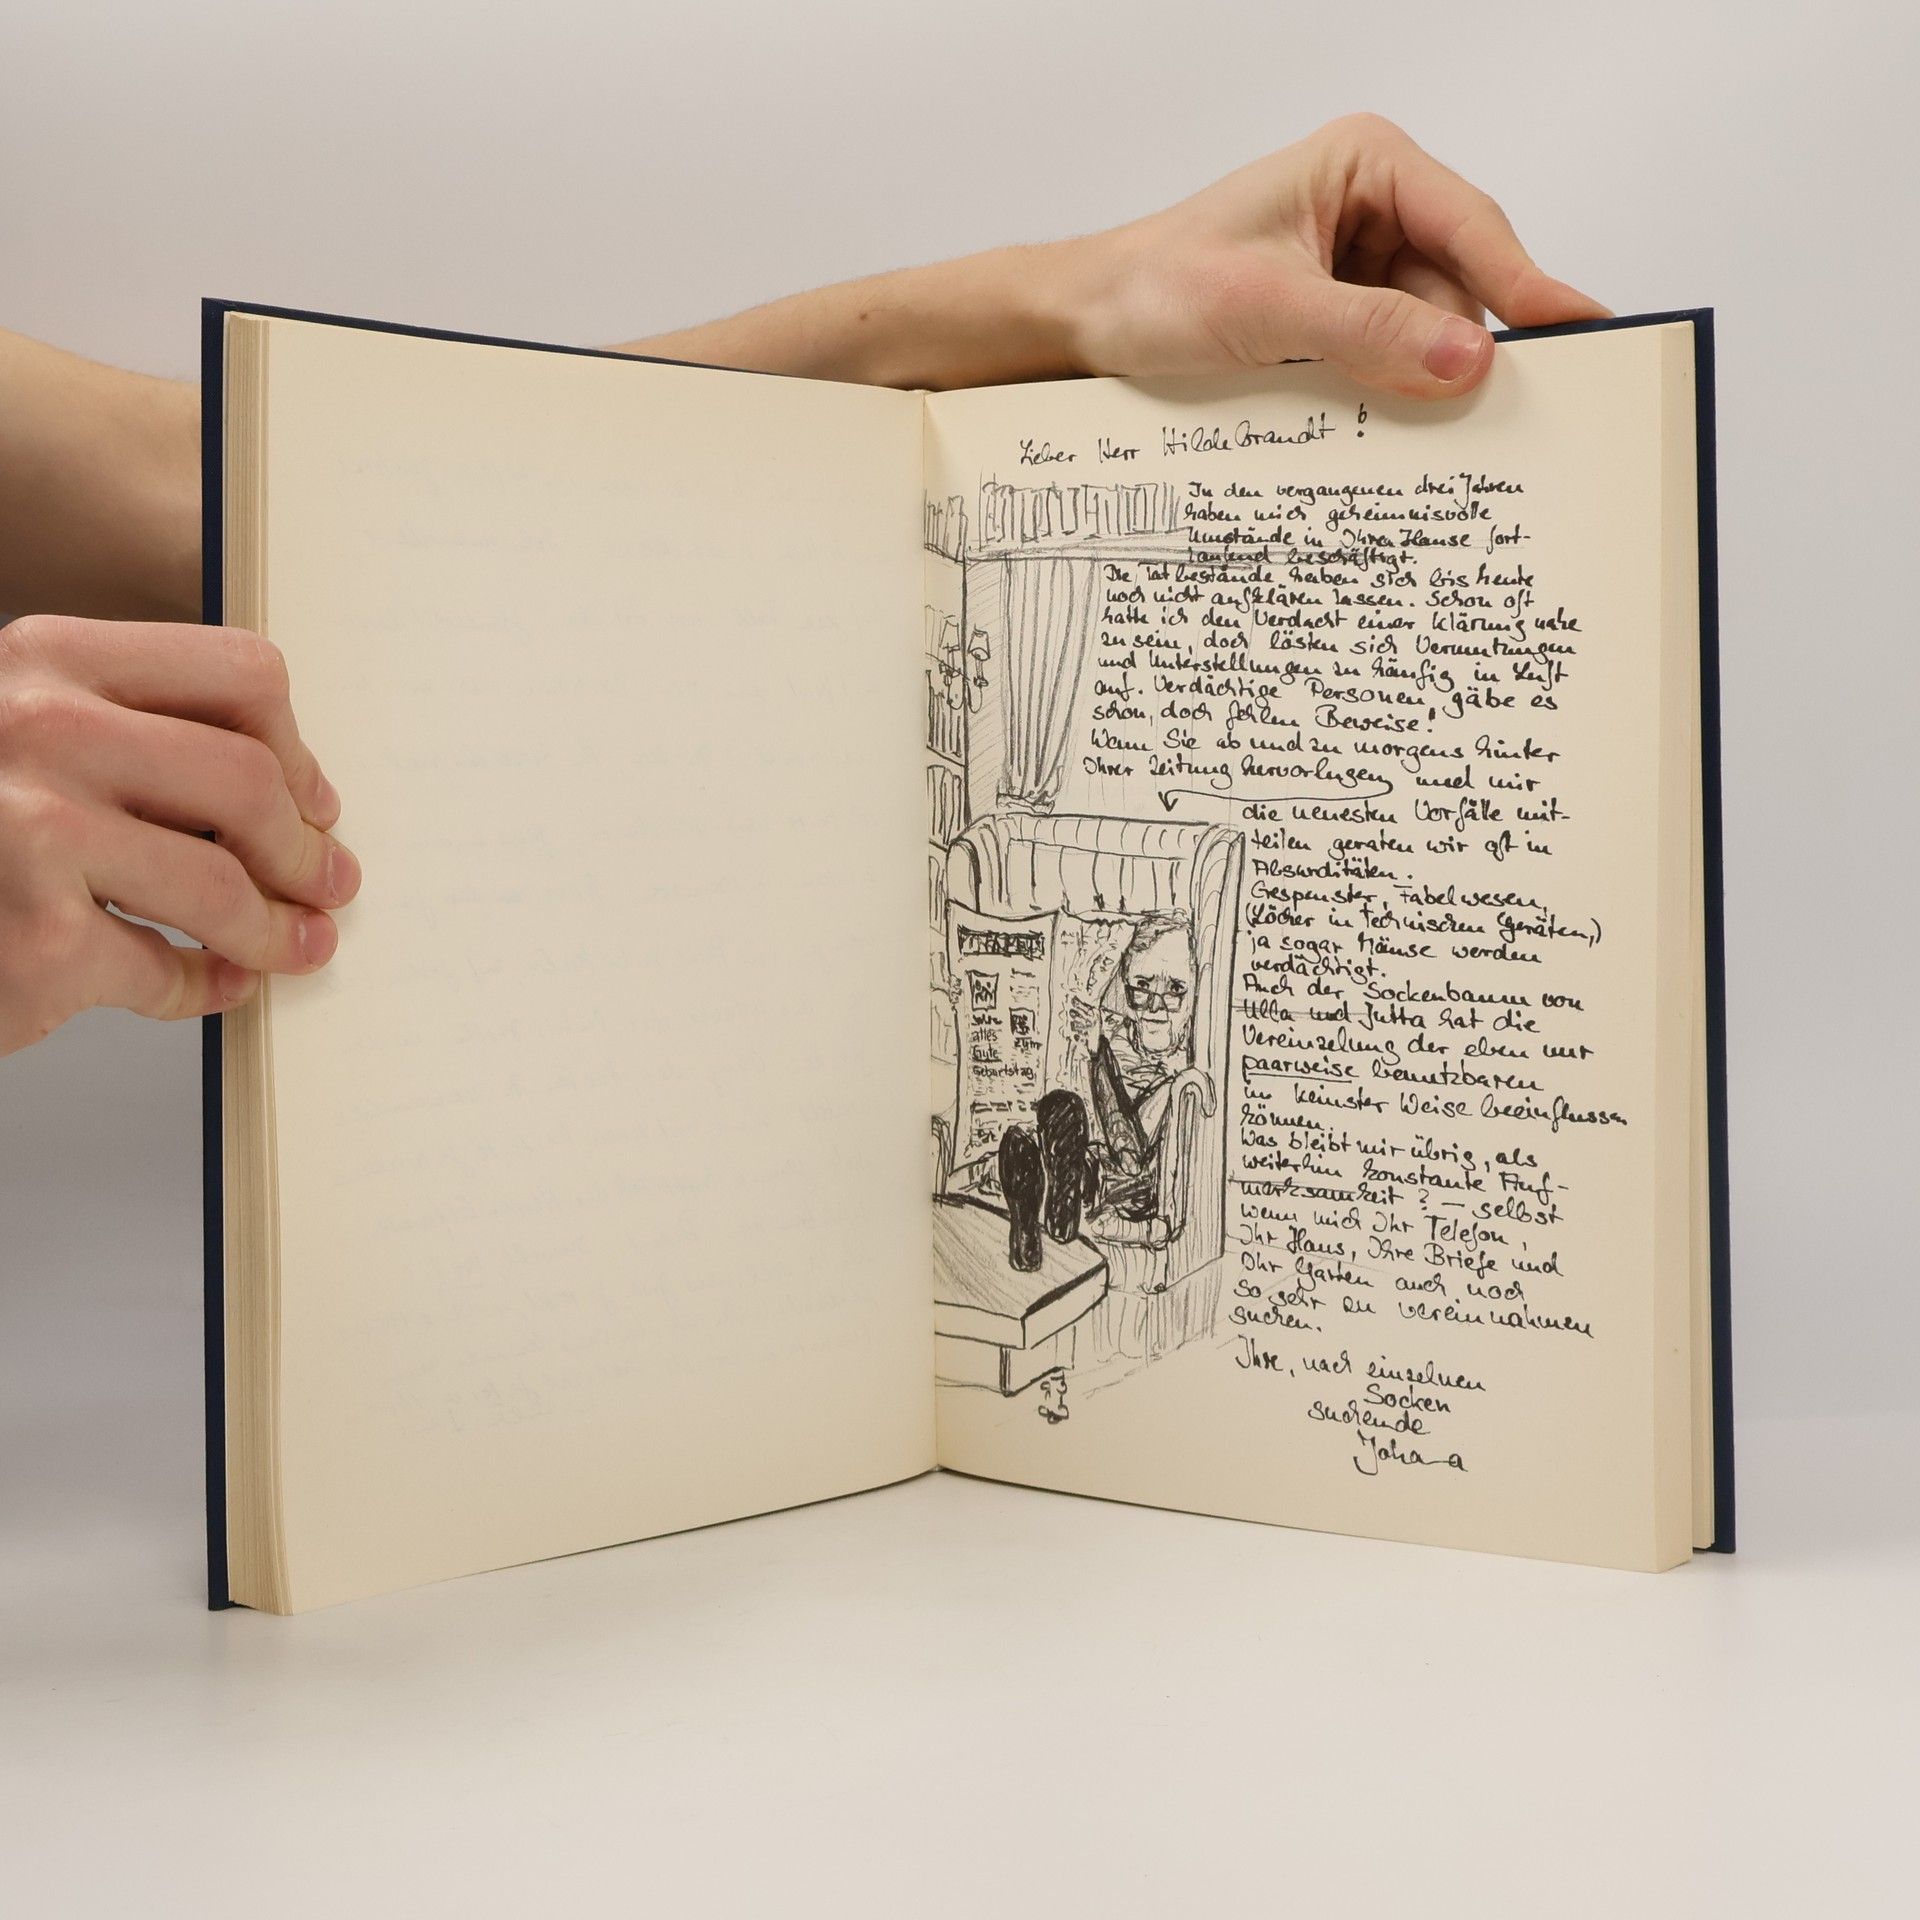 Lieber Herr Hildebrandt !
In den vergangenen drei Jahren
haben mich geheimnisvolle
Umstände in Ihrem Hause fort-
laufend beschäftigt.
Die Tatbestände haben sich bis heute
noch nicht aufklären lassen. Schon oft
hatte ich den Verdacht einer Klärung nahe
zu sein, doch lösten sich Vermutungen
und Unterstellungen zu häufig in Luft
auf. Verdächtige Personen, gäbe es
schon, doch fehlen Beweise!
Wenn Sie ab und zu morgens hinter
Ihrer Zeitung hervorlugen und mir
die neuesten Vorfälle mit-
teilen geraten wir oft in
Absurditäten.
Gespenster, Fabelwesen,
(Löcher in technischen Geräten,)
ja sogar Mäuse werden
verdächtigt.
Auch der Sockenbaum von
Ulla und Jutta hat die
Vereinzelung der eben nur
paarweise benutzbaren
in keinster Weise beeinflussen
können.
Was bleibt mir übrig, als
weiterhin konstante Auf-
merksamkeit ? — selbst
wenn mich Ihr Telefon,
Ihr Haus, Ihre Briefe und
Ihr Garten auch noch
so sehr zu vereinnahmen
suchen.
Ihre, nach einzelnen
Socken
suchende
Johanna
alles
Gute
zum
Geburtstag